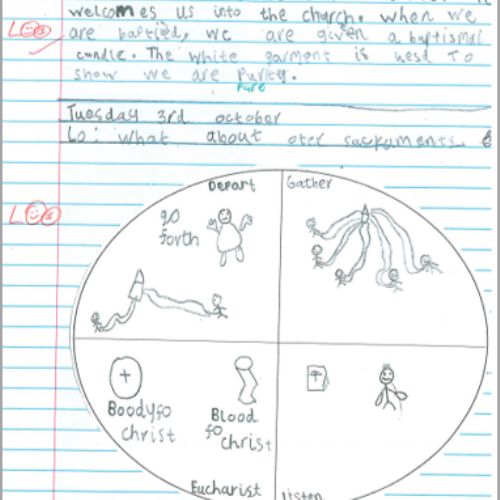 welcomes us into the church. when we
are baptied, we are given a baptismal
candle. The white garment is uesd To
show we are Purity.
Pure
Tuesday 3rd october
Lo: What about oter sacraments.
Depart
Gather
go
forth
Boodyfo
christ
Blood
fo
christ
Eucharist
listen